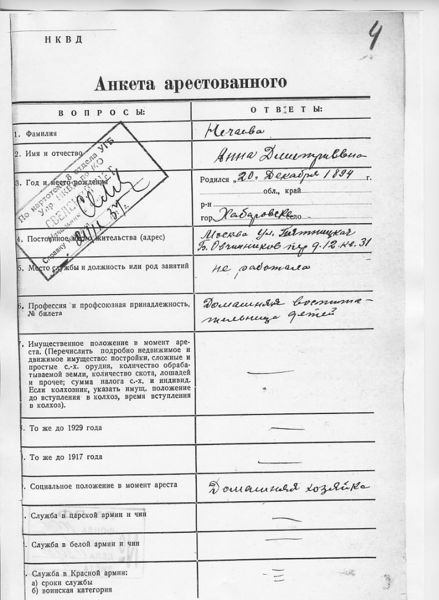 4
НКВД
Анкета арестованного
ВОПРОСЫ: ОТВЕТЫ:
1. Фамилия Нечаева
2. Имя и отчество Анна Дмитриевна
3. Год и место рождения Родился „20" Декабря 1894 г.
обл., край
р-н
гор. Хабаровск село
4. Постоянное местожительства (адрес) Москва ул. Пятницкая
Б. Овчинников пер д. 12. кв. 31
5. Место службы и должность или род занятий не работала
6. Профессия и профсоюзная принадлежность, № билета Домашняя воспита-
тельница детей
. Имущественное положение в момент аре-
ста. (Перечислить подробно недвижимое и
движимое имущество: постройки, сложные и
простые с.-х. орудия, количество обраба-
тываемой земли, количество скота, лошадей
и прочее; сумма налога с.-х. и индивид.
Если колхозник, указать имущ. положение
до вступления в колхоз, время вступления
в колхоз). —
. То же до 1929 года —
. То же до 1917 года —
. Социальное положение в момент ареста Домашняя хозяйка
. Служба в царской армии и чин —
. Служба в белой армии и чин —
. Служба в Красной армии:
а) сроки службы —
б) воинская категория —
По картотеке 8 отдела УГБ
3